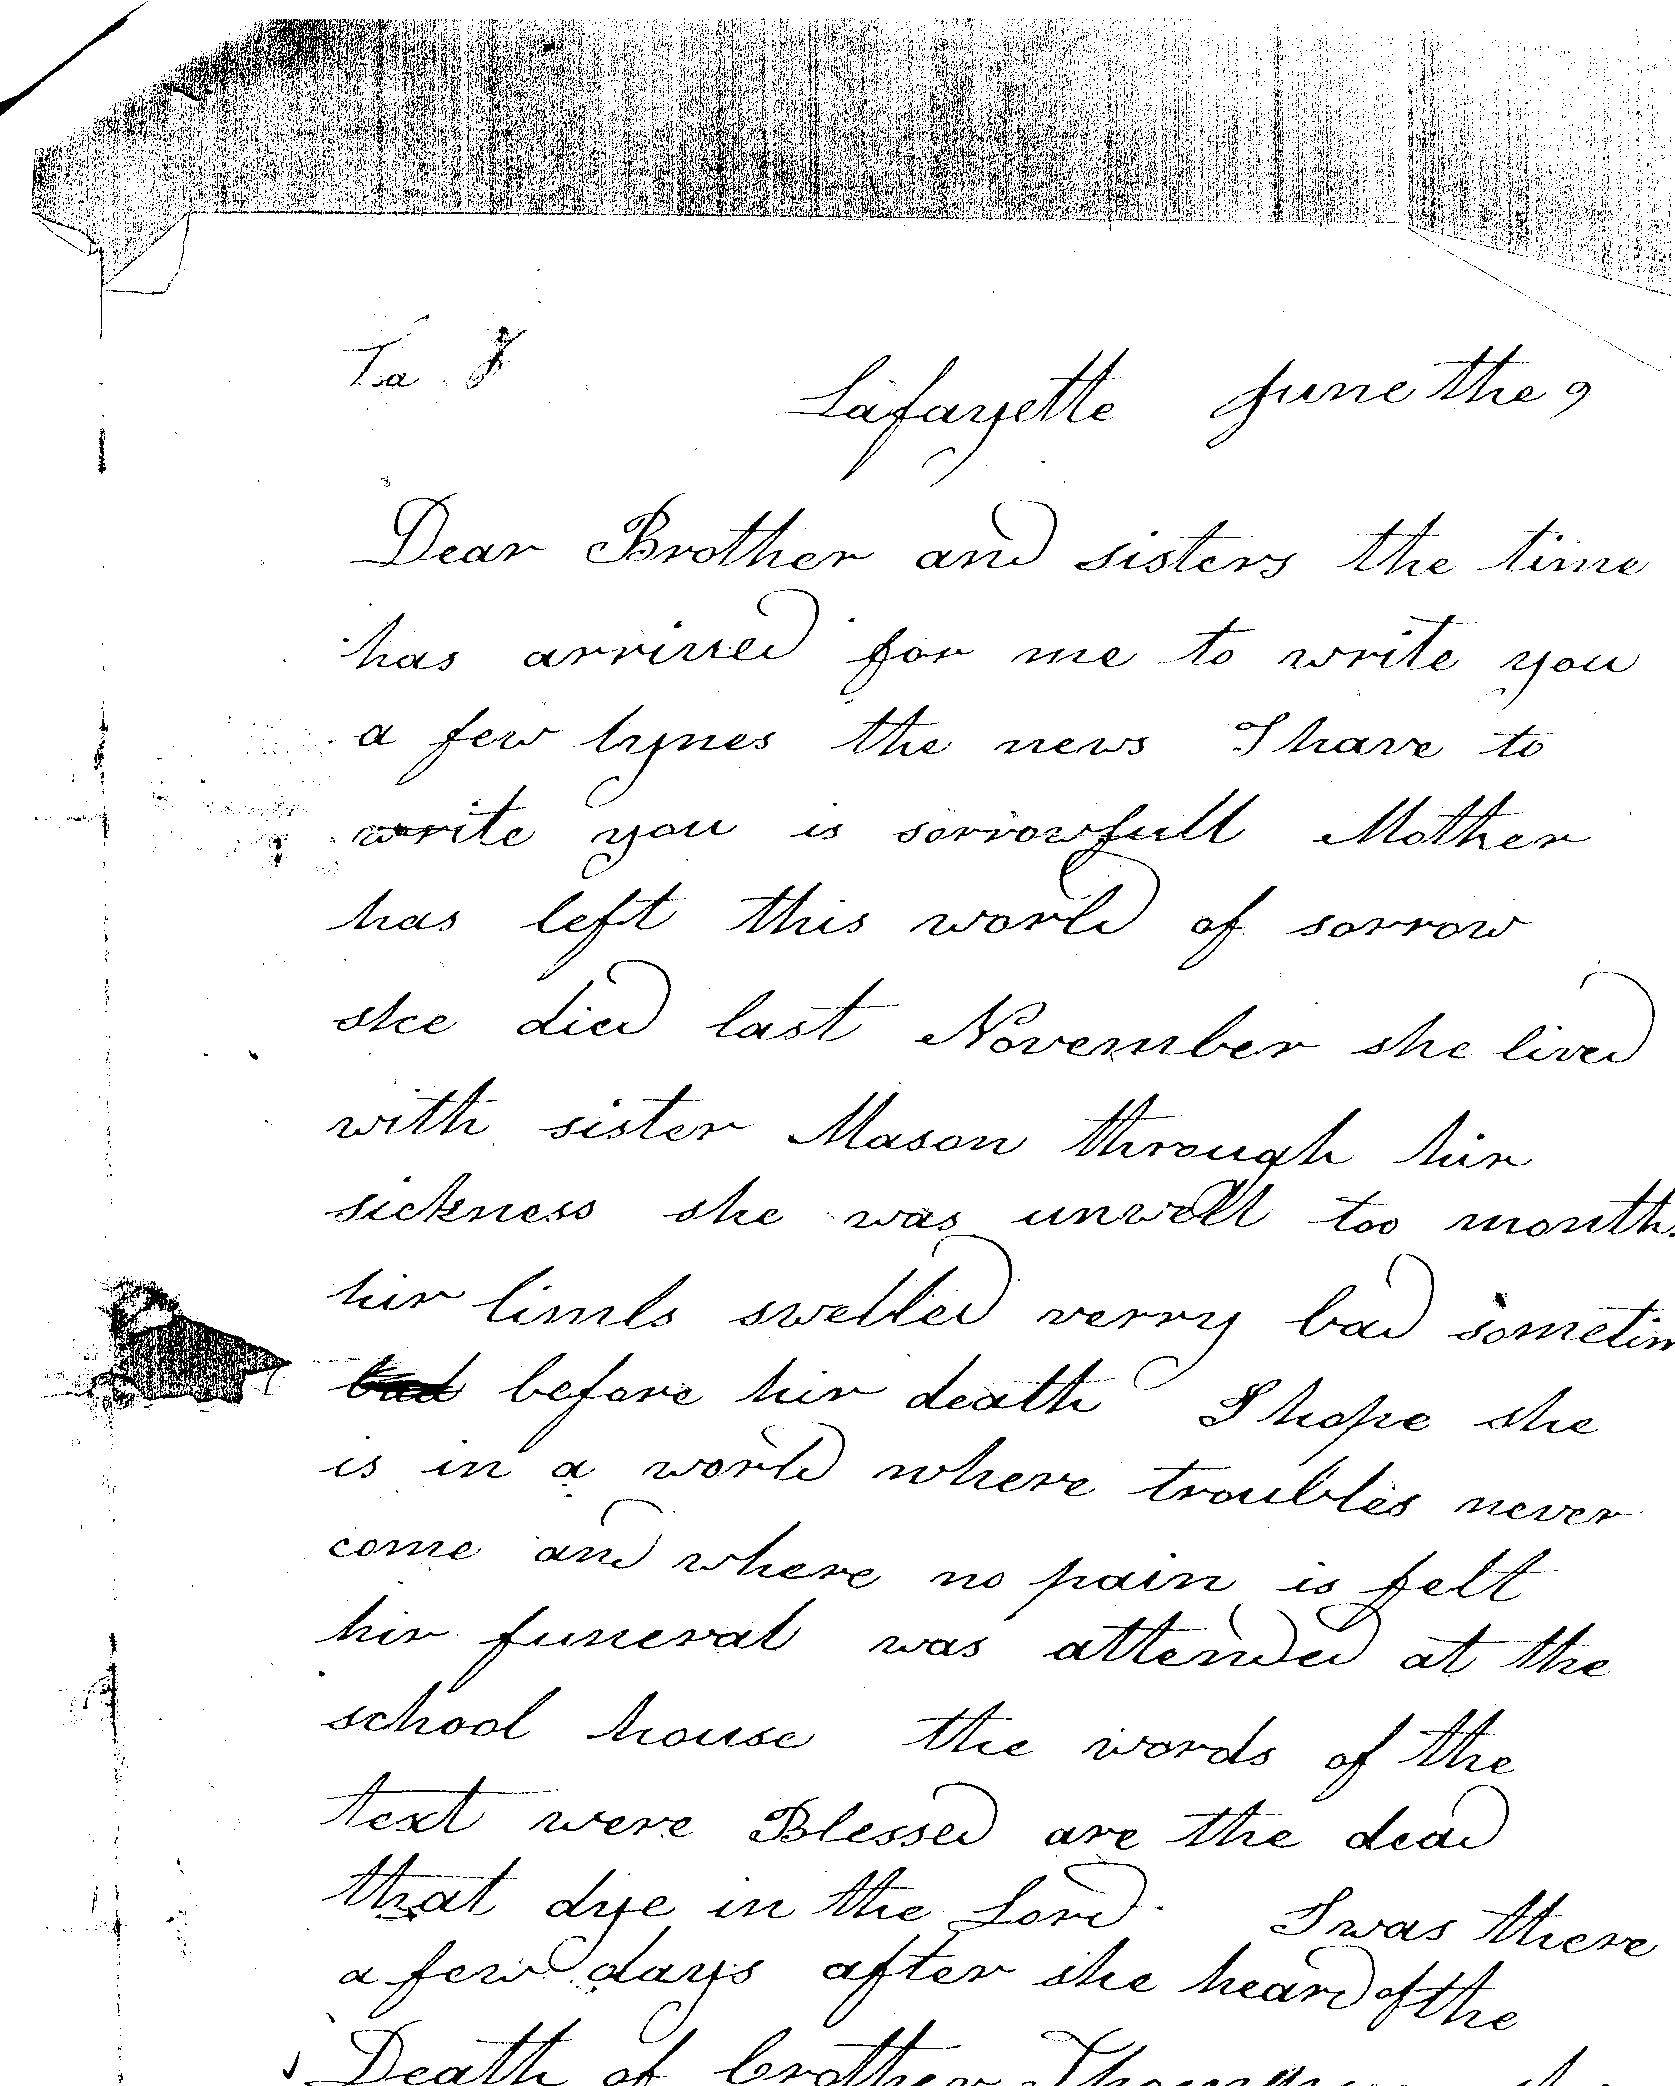 Lafayette June the 9
Dear Brother and sisters the time
has arrived for me to write you
a few lynes the news I have to
write you is sorrowfull Mother
has left this world of sorrow
she died last November she lived
with sister Mason through hir
sickness she was unwell too month
hir limbs swelled verry bad sometim
bad before hir death I hope she
is in a world where troubles never
come and where no pain is felt
hir funeral was attended at the
school house the words of the
text were Blessed are the dead
that dye in the Lord. I was there
a few days after she heard of the
Death of brother